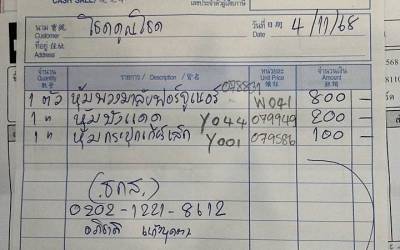 CASH SALE/
เลขประจำตัวผู้เสียภาษี
นาม 寶號 Customer โชคคูณโชค วันที่ 日期 Date 4/11/68
ที่อยู่ 住址 Address
จำนวน Quantity 數量 รายการ / Description / 貨名 หน่วยละ Unit Price จำนวนเงิน Amount 銀碼
1 ตัว หุ้มพวงมาลัยฟอร์จูนเนอร์ W041 800 -
1 " หุ้มบังแดด Y044 079949 200 -
1 " หุ้มกระปุกเกียร์เล็ก Y001 079586 100 -
(ธกส.)
0202-1221-8612
อภิชาติ